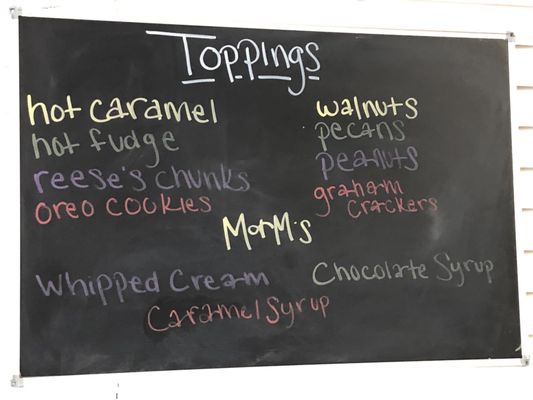 Toppings
hot caramel
hot fudge
reese's chunks
oreo cookies
walnuts
pecans
peanuts
graham
crackers
MorM's
Whipped Cream
Chocolate Syrup
Caramel Syrup